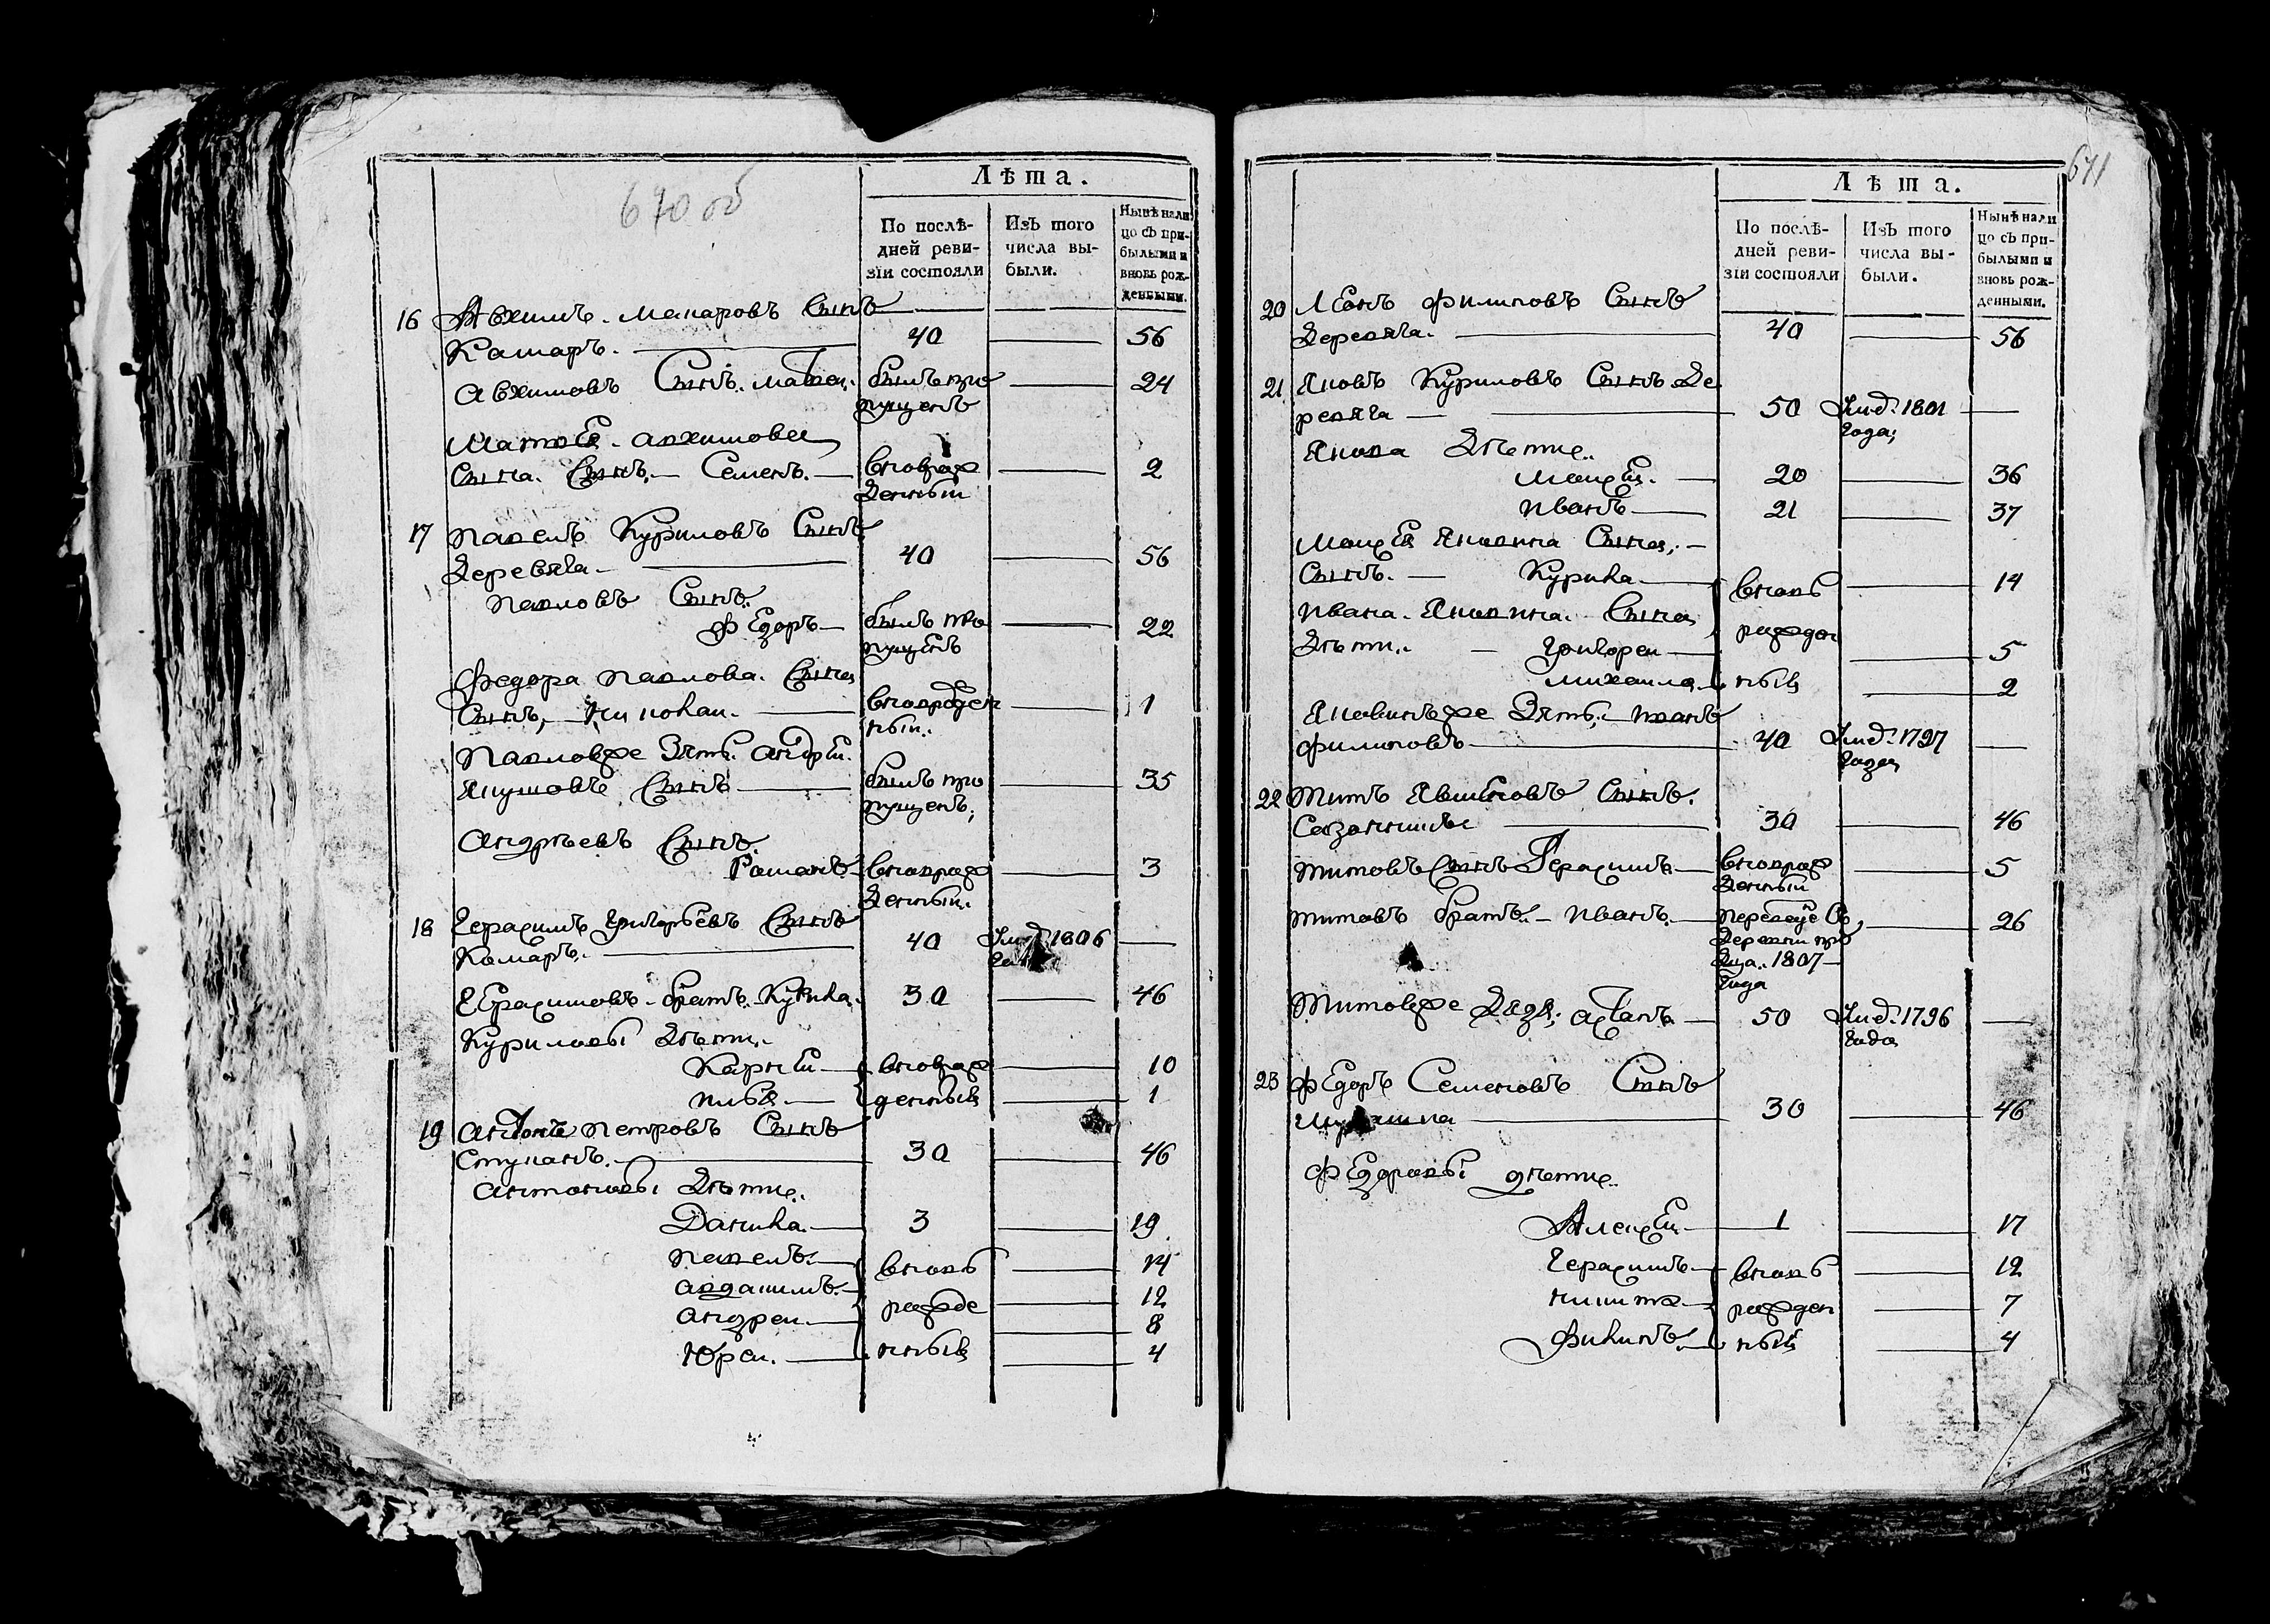 670 об
Лѣта.
По послѣ-
дней реви-
зіи состояли
Изъ того
числа вы-
были.
Нынѣ нали
цо съ при-
былыми и
вновь рож-
денными.
16 Авхимъ Макаровъ Сынъ
Камаръ. 40 56
Авхимовъ Сынъ Матвеи былъ про 24
пущенъ
Матвея Авхимова
Сына Сынъ Семенъ вновьрож 2
денныи
17 Павелъ Куриловъ Сынъ
Деревяга 40 56
Павловъ Сынъ
Федоръ былъ про 22
пущенъ
Федора Павлова Сына
Сынъ вноврожден 1
ныи
Павловже Зять Андреи
Якушовъ Сынъ былъ про 35
пущенъ
Андреевъ Сынъ
Романъ вноврож 3
денныи
18 Герасимъ Григорьевъ Сынъ
Комаръ 40 1806
Герасимовъ братъ 30 46
Куриловы Дѣти
Карней вноврож 10
денныя 1
19 Антонъ Петровъ Сынъ
Ступакъ 30 46
Антоновы Дѣти
Данила 3 19
Павелъ вновь 14
Авдакимъ 12
Андреи рожде 8
Юреи нныя 4
671
Лѣта.
По послѣ-
дней реви-
зіи состояли
Изъ того
числа вы-
были.
Нынѣ нали
цо съ при-
былыми и
вновь рож-
денными.
20 Леонъ Филиповъ Сынъ
Деревяга 40 56
21 Яковъ Куриловъ Сынъ Де
ревяга 50 1801
года
Якова Дѣти
Моисеи 20 36
Иванъ 21 37
Моисея Яковлева Сына
Сынъ Курила вновь 14
Ивана Яковлева Сына
рожден
Дѣти Григореи 5
Михаила ныя 2
Яковлевже Зять Иванъ
Филиповъ 40 1797
года
22 Титъ Сынъ
30 46
Титовъ Сынъ Герасимъ вноврож 5
денныи
Титовъ братъ Иванъ 26
Деревни
1807
года
Титовже Дядя 50 1796
года
23 Федоръ Семеновъ Сынъ
30 46
Федоровы дѣти
Алексеи 1 17
Герасимъ вновь 12
Никита рожден 7
ныя 4